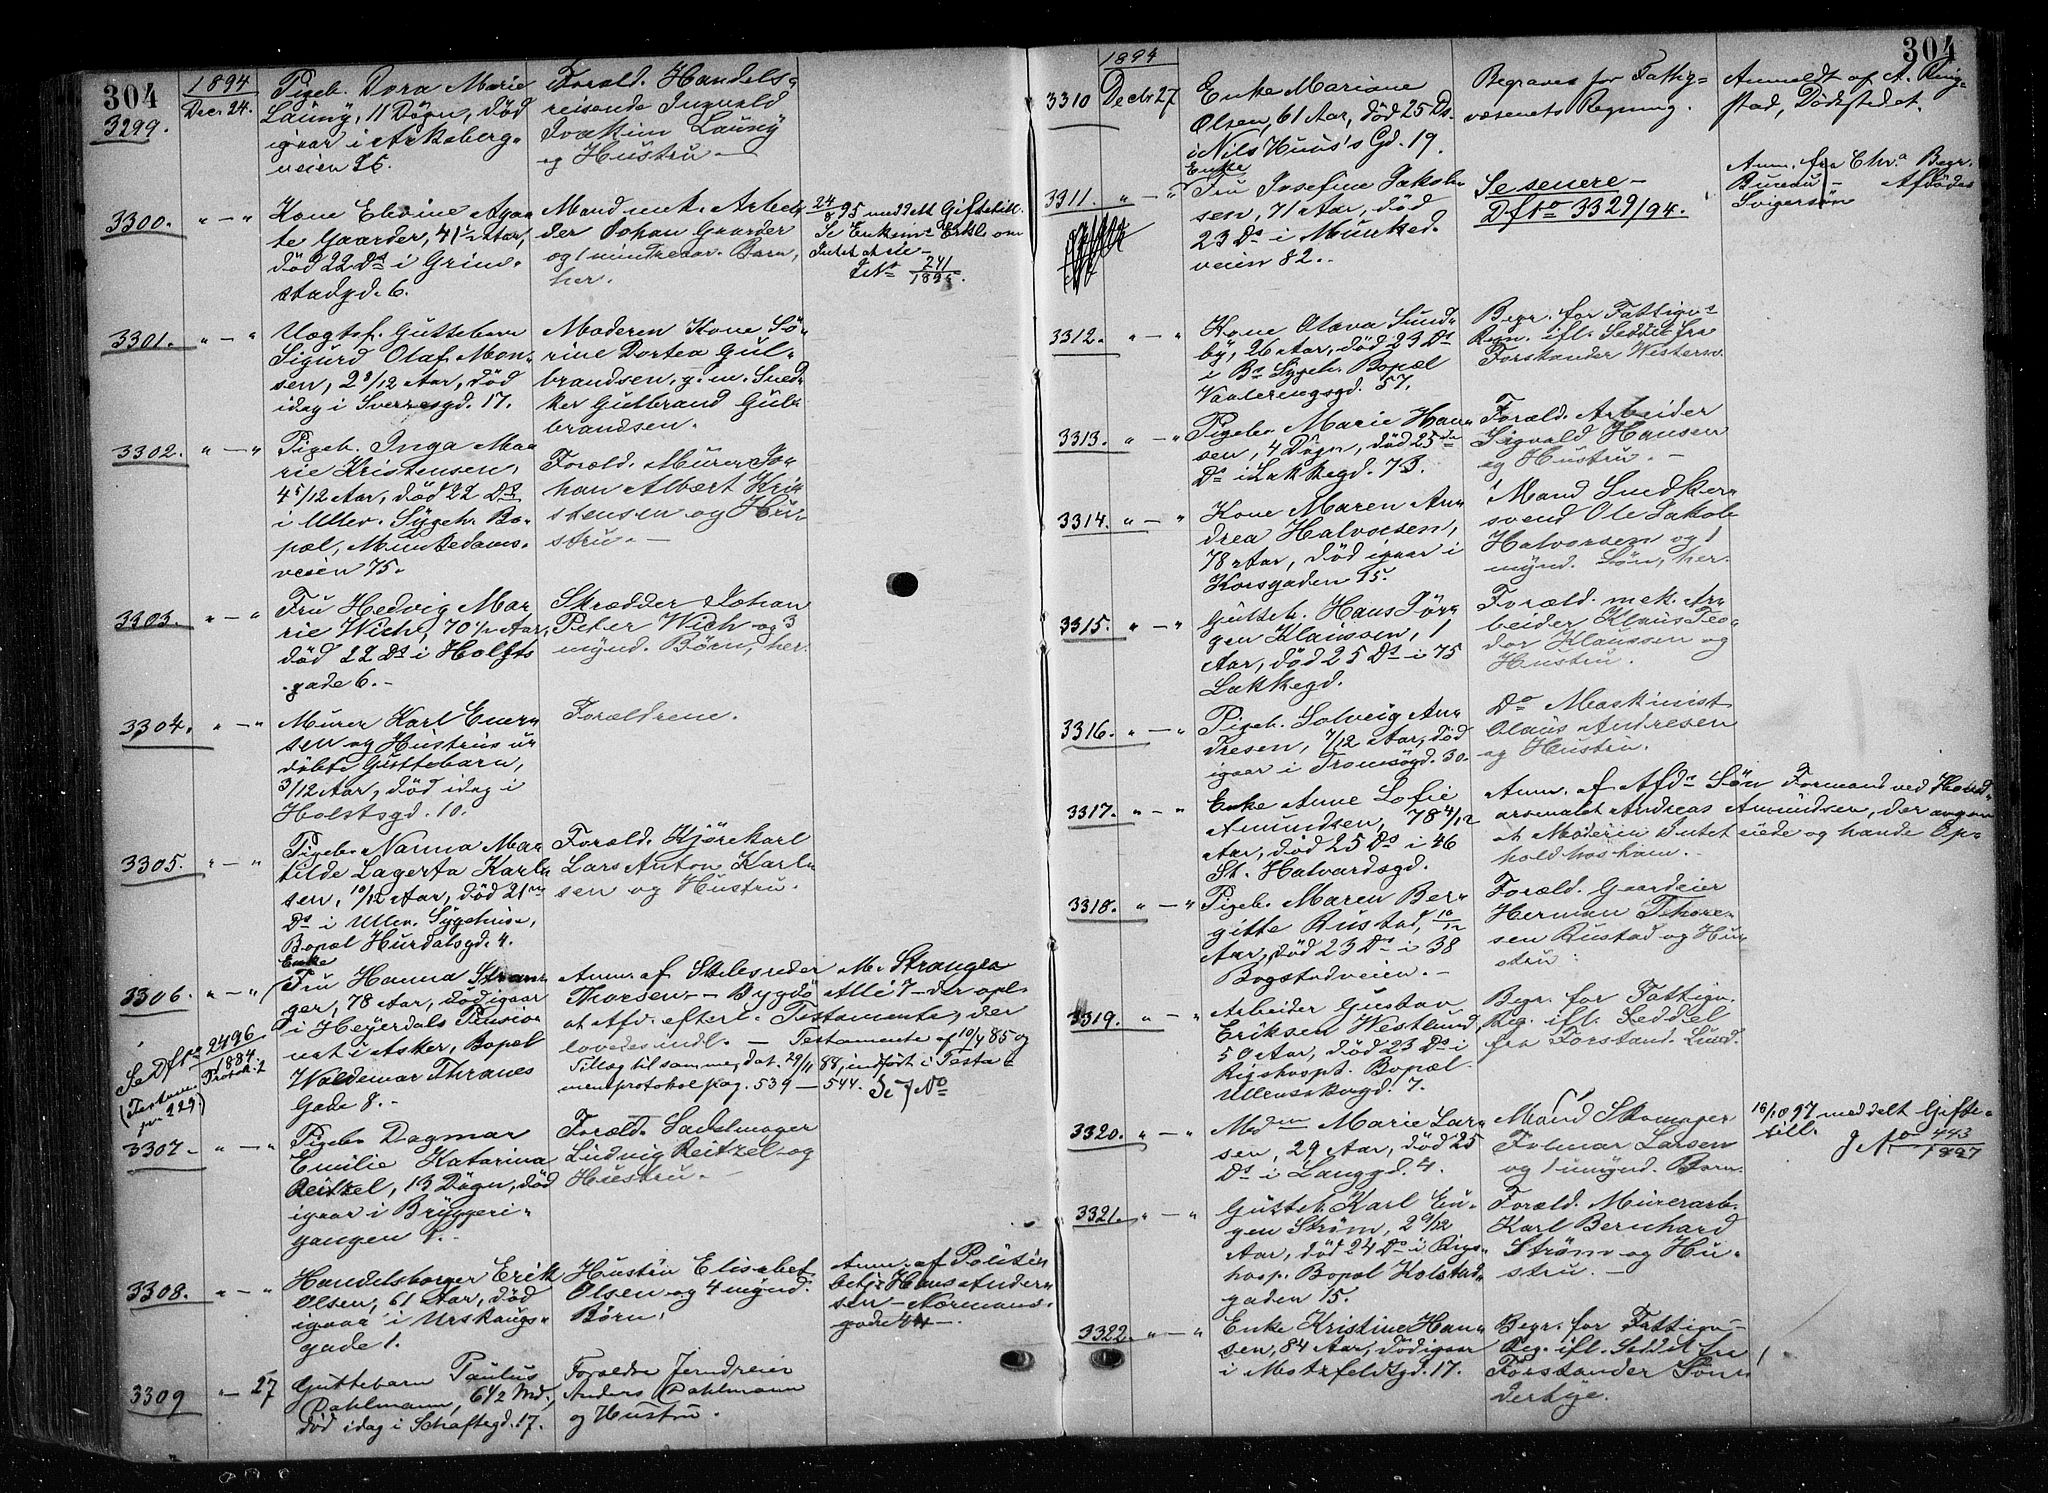 304
1894
3299.
Decr 24.
Pigeb. Dora Marie
Launy, 11 Døgn, død
igaar i Akersberg-
veien 26.
Foræld. Handels-
reisende Ingvald
Joakim Launy
og Hustru —
3300.
" — "
Kone Elevine Agaa-
te Gaarder, 41 1/2 Aar,
død 22 Ds i Grim-
stadgd. 6.
Mand mek. Arbei-
der Johan Gaarder
og 1 mindreaar. Barn,
her.
24/8 95 meddelt Giftetill.
Se Enkem. Erkl. om
Intet at eie —
J No 241/1895.
3301.
" — "
Uægtef. Guttebarn
Sigurd Olaf Mon-
sen, 2 8/12 Aar, død
idag i Sverresgd. 17.
Moderen Kone Sø-
rine Dortea Gul-
brandsen, g. m. Sned-
ker Gulbrand Gul-
brandsen.
3302.
" — "
Pigeb. Inga Ma-
rie Kristensen,
4 5/12 Aar, død 22 Ds
i Ullev. Sygeh. Bo-
pæl, Munkedams-
veien 75.
Foræld. Murer Jo-
han Albert Kri-
stensen og Hu-
stru. —
3303.
" — "
Fru Hedvig Ma-
rie Wich, 70 1/2 Aar,
død 22 Ds i Holsts
gade 6. —
Skrædder Johan
Peter Wich og 3
mynd. Børn, her.
3304.
" — "
Murer Karl Ener-
sen og Hustrus u-
døbte Guttebarn,
3/12 Aar, død idag i
Holstsgd. 10.
Forældrene.
3305.
" — "
Pigeb. Nanna Ma-
tilde Lagerta Karl-
sen, 10/12 Aar, død 21
Ds i Ullev. Sygehus,
Bopæl Hurdalsgd. 4.
Foræld. Kjørekarl
Lars Anton Karl-
sen og Hustru.
3306.
" — "
Enke
Fru Hanna Stran-
ger, 78 Aar, død igaar
i Heyerdals Pensio-
nat i Asker, Bopæl
Waldemar Thranes
Gade 8. —
Anm. af Skibsreder M. Stranger
Thorsen — Bygdø Allé 7 — der opl.
at Afd. efterl. Testamente, der
lovedes indl. — Testamente af 10/4 85 og
Tillæg til samme, dat. 29/11 88, indført i Testa-
mentprotokol pag. 539 — 544. Se J No
Se Dfto 2496/1884.
Protok. 2
(Testam.
229.)
3307.
" — "
Pigeb. Dagmar
Emilie Katarina
Reitzel, 13 Døgn, død
igaar i Bryggeri-
gangen 9. —
Foræld. Sadelmager
Ludvig Reitzel og
Hustru. —
3308.
" — "
Handelsborger Erik
Olsen, 61 Aar, død
igaar i Urskougs-
gade 1.
Hustru Elisabet
Olsen og 4 mynd.
Børn.
Anm. af Politi-
betj. Hans Ander-
sen — Normans-
gade 44 —.
3309
" — 27
Guttebarn Paulus
Dahlmann, 6 1/2 Md.,
død idag i Schaftegd. 17.
Forældre Jerndreier
Anders Dahlmann
og Hustru.
304
1894
3310
Decbr 27
Enke Mariane
Olsen, 61 Aar, død 25 Ds.
i Nils Huus's Gd. 19.
Begraves for Fattig-
væsenets Regning.
Anmeldt af A. Ring-
stad, Dødsstedet.
3311.
" — "
Enke
Fru Josefine Jakob-
sen, 71 Aar, død
23 Ds i Munked.
veien 82. —
Se senere —
Dfto 3329/94.
Anm. fra Chra Begr.
Bureau — Afdødes
Svigersøn
3312.
" — "
Kone Olava Sund-
by, 26 Aar, død 23 Ds
i Bs Sygeh. Bopæl
Vaalerengsgd. 57.
Begr. for Fattigv.
Regn. ifl. Seddel fra
Forstander Western.
3313.
" — "
Pigeb. Marie Han-
sen, 4 Døgn, død 25 de
Ds i Lakkegd. 73.
Foræld. Arbeider
Sigvald Hansen
og Hustru. —
3314.
" — "
Kone Maren An-
drea Halvorsen,
78 Aar, død igaar i
Korsgaden 15.
Mand Snedker-
svend Ole Jakob
Halvorsen og 1
mynd. Søn, her.
3315.
" — "
Gutteb. Hans Jør-
gen Klaussen, 1
Aar, død 25 Ds i 75
Lakkegd.
Foræld. mek. Ar-
beider Klaus Teo-
dor Klaussen og
Hustru.
3316.
" — "
Pigeb. Solveig An-
dresen, 7/12 Aar, død
igaar i Tromsøgd. 30.
Do Maskinist
Olaus Andresen
og Hustru.
3317.
" — "
Enke Anne Sofie
Amundsen, 78 4/12
Aar, død 25 Ds i 46
St. Halvardsgd.
Anm. af Afds Søn Formand ved Hoved-
arsenalet Andreas Amundsen, der angav
at Moderen Intet eiede og havde Op-
hold hos ham. —
3318.
" — "
Pigeb. Maren Ber-
gitte Rustad, 10/12
Aar, død 23 Ds i 38
Bogstadveien. —
Foræld. Gaardeier
Herman Thore-
sen Rustad og Hu-
stru.
3319.
" — "
Arbeider Gustav
Eriksen Westlund,
50 Aar, død 23 Ds i
Rigshospt. Bopæl
Ullensakergd. 7.
Begr. for Fattigv.
Reg. ifl. Seddel
fra Forstand. Lund.
3320.
" — "
Mdm Marie Lar-
sen, 29 Aar, død 25
Ds i Langgd. 4.
Mand Skomager
Folmar Larsen
og 1 umynd. Barn.
16/10 97 meddelt Gifte-
till.
J No 443/1897
3321.
" — "
Gutteb. Karl Eu-
gen Strøm, 2 9/12
Aar, død 24 Ds i Rigs-
hosp. Bopæl Kolstad-
gaden 15.
Foræld. Murerarb.
Karl Bernhard
Strøm og Hu-
stru. —
3322.
" — "
Enke Kristine Han-
sen, 84 Aar, død igaar
i Motzfeldtsgd. 17.
Begr. for Fattigv.
Reg. ifl. Seddel fra
Forstander Søn-
derbye.